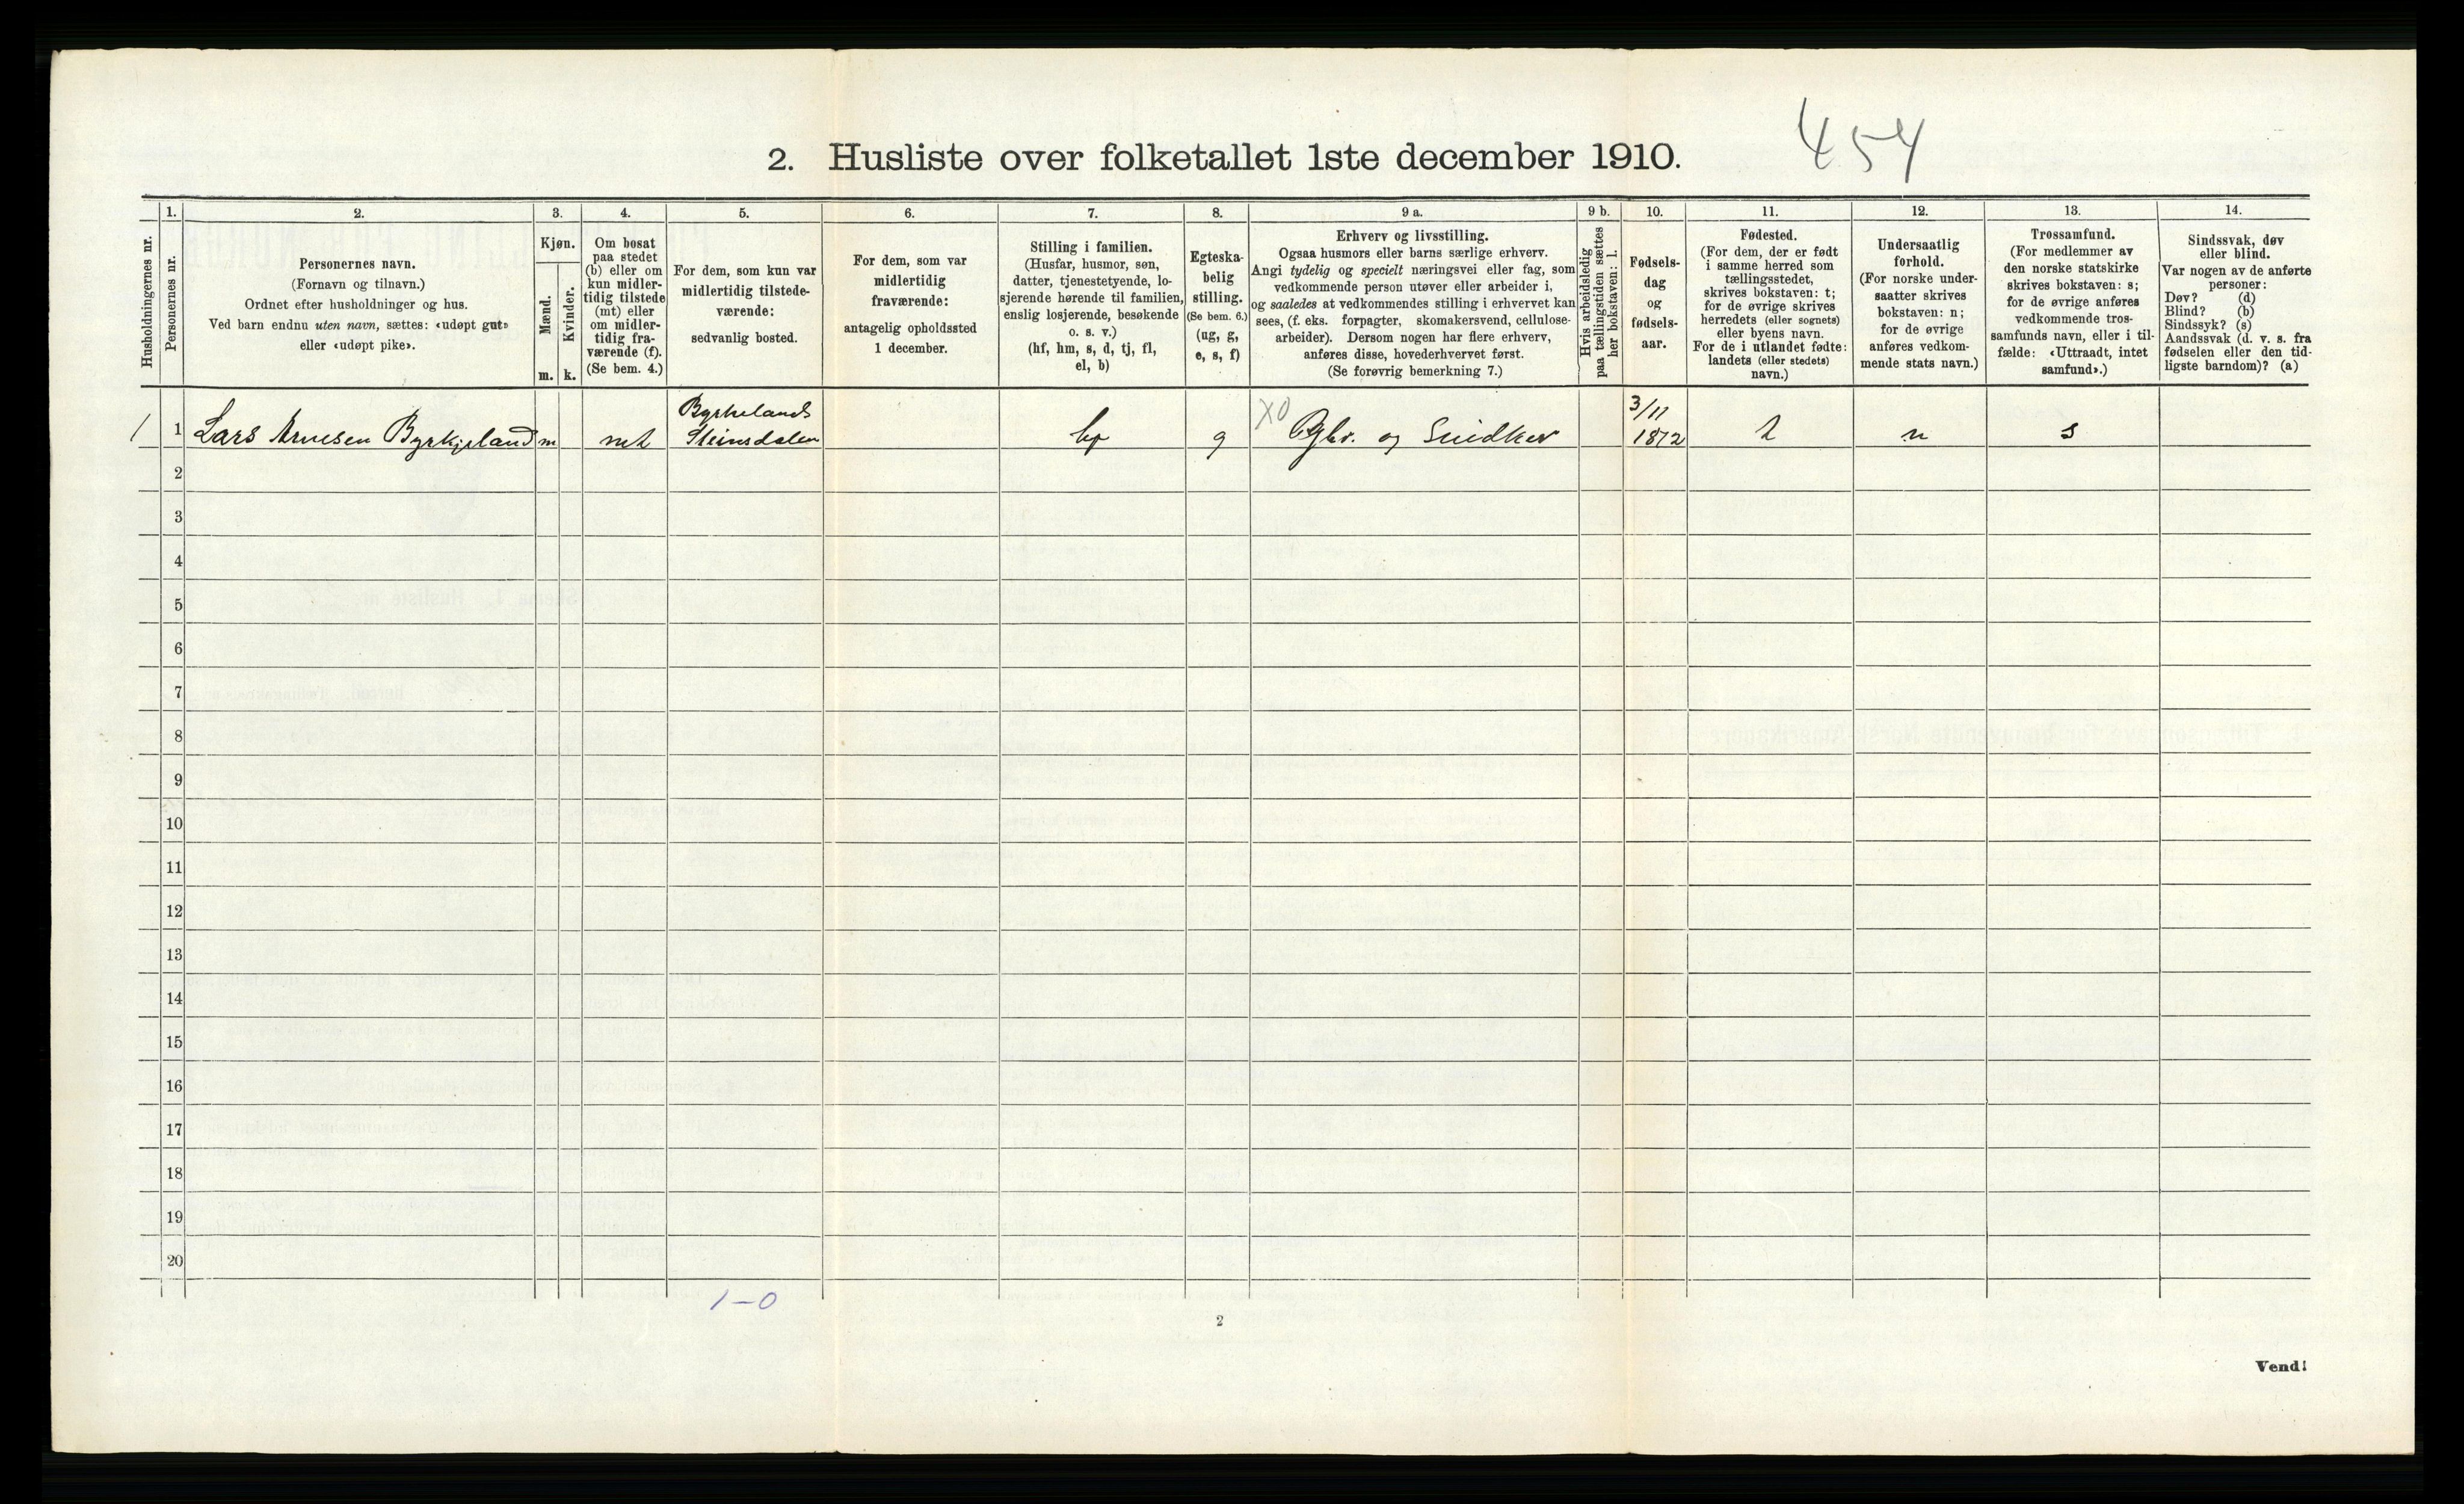 454
2. Husliste over folketallet 1ste december 1910.
Husholdningernes nr.
1.
Personernes nr.
2.
Personernes navn.
(Fornavn og tilnavn.)
Ordnet efter husholdninger og hus.
Ved barn endnu uten navn, sættes: «udøpt gut»
eller «udøpt pike».
3.
Kjøn.
Mænd.
Kvinder.
m. k.
4.
Om bosat
paa stedet
(b) eller om
kun midler-
tidig tilstede
(mt) eller
om midler-
tidig fra-
værende (f).
(Se bem. 4.)
5.
For dem, som kun var
midlertidig tilstede-
værende:
sedvanlig bosted.
6.
For dem, som var
midlertidig
fraværende:
antagelig opholdssted
1 december.
7.
Stilling i familien.
(Husfar, husmor, søn,
datter, tjenestetyende, lo-
sjerende hørende til familien,
enslig losjerende, besøkende
o. s. v.)
(hf, hm, s, d, tj, fl,
el, b)
8.
Egteska-
belig
stilling.
(Se bem. 6.)
(ug, g,
e, s, f)
9 a.
Erhverv og livsstilling.
Ogsaa husmors eller barns særlige erhverv.
Angi tydelig og specielt næringsvei eller fag, som
vedkommende person utøver eller arbeider i,
og saaledes at vedkommendes stilling i erhvervet kan
sees, (f. eks. forpagter, skomakersvend, cellulose-
arbeider). Dersom nogen har flere erhverv,
anføres disse, hovederhvervet først.
(Se forøvrig bemerkning 7.)
9 b.
Hvis arbeidsledig
paa tællingstiden sættes
her bokstaven: l.
10.
Fødsels-
dag
og
fødsels-
aar.
11.
Fødested.
(For dem, der er født
i samme herred som
tællingsstedet,
skrives bokstaven: t;
for de øvrige skrives
herredets (eller sognets)
eller byens navn.
For de i utlandet fødte:
landets (eller stedets)
navn.)
12.
Undersaatlig
forhold.
(For norske under-
saatter skrives
bokstaven: n;
for de øvrige
anføres vedkom-
mende stats navn.)
13.
Trossamfund.
(For medlemmer av
den norske statskirke
skrives bokstaven: s;
for de øvrige anføres
vedkommende tros-
samfunds navn, eller i til-
fælde: «Uttraadt, intet
samfund».)
14.
Sindssvak, døv
eller blind.
Var nogen av de anførte
personer:
Døv? (d)
Blind? (b)
Sindssyk? (s)
Aandssvak (d. v. s. fra
fødselen eller den tid-
ligste barndom)? (a)
1 1 Lars Arnesen Byrkjeland m mt Byrkelands Steinsdalen g X0 Gbr. og Snidker 3/11 1872 t n s
2
3
4
5
6
7
8
9
10
11
12
13
14
15
16
17
18
19
20
1–0
2
Vend!